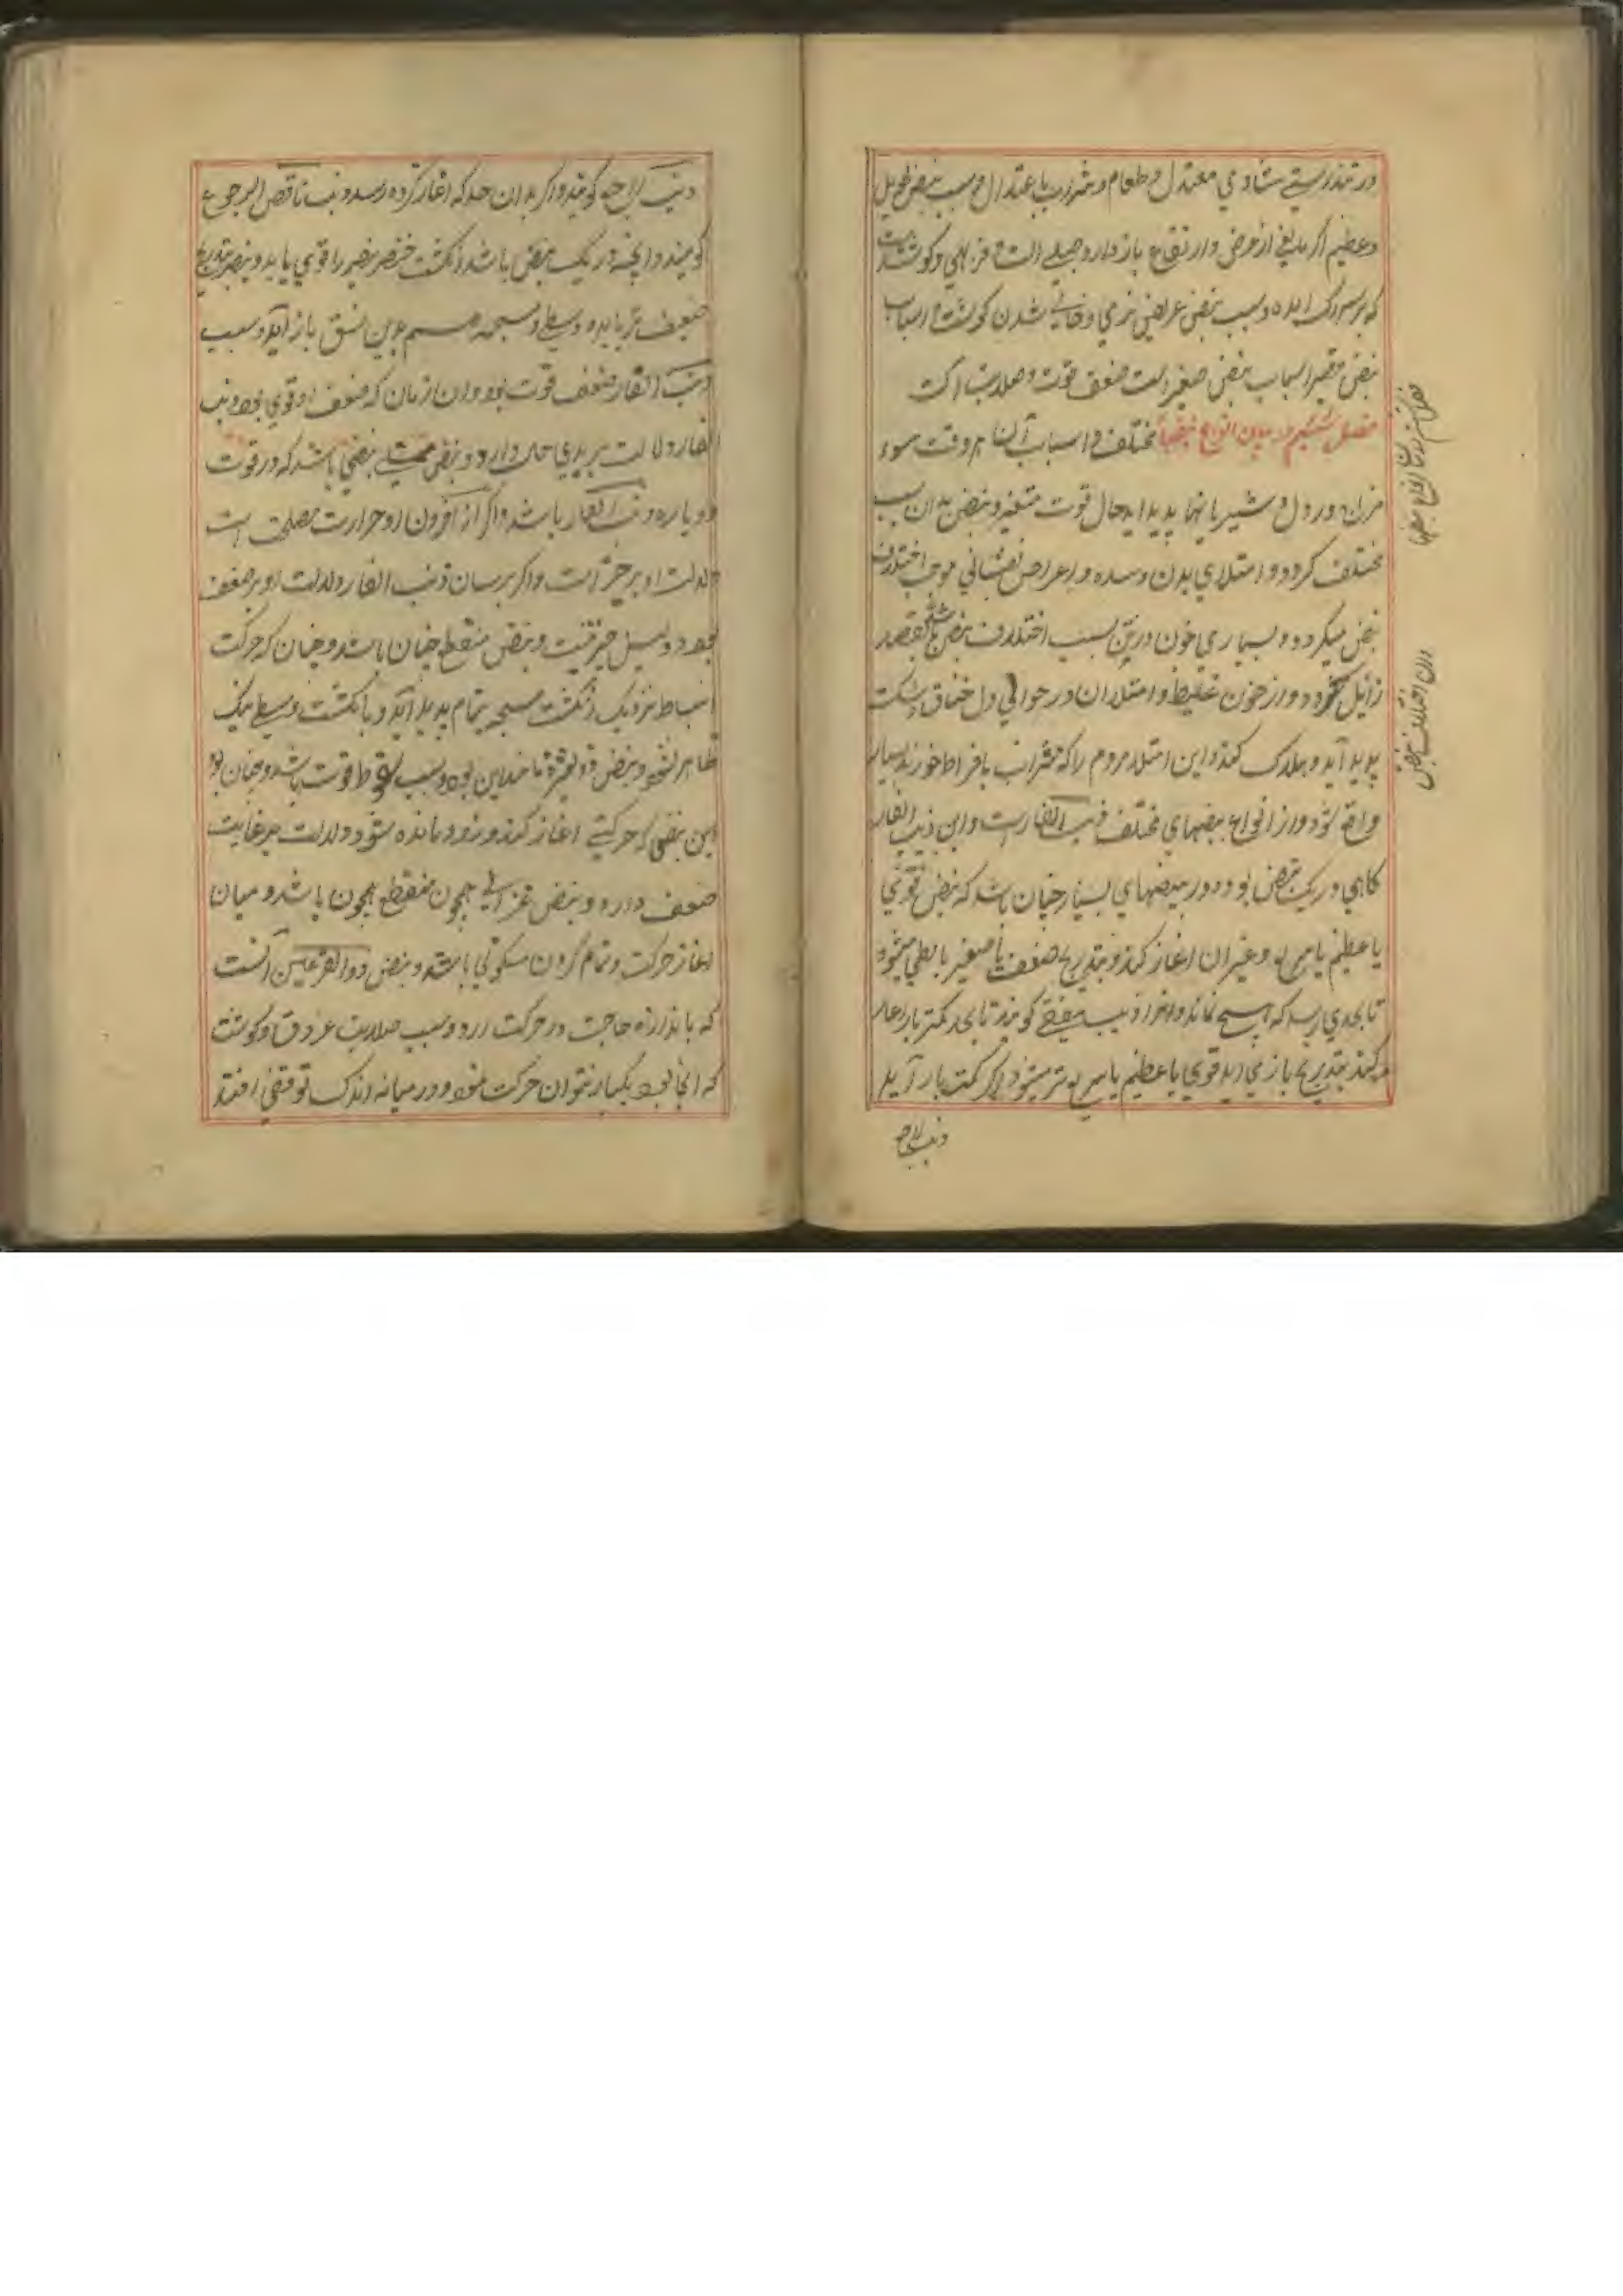 در تندرستی شادی معتدل و طعام و شراب باعتدال و سبب نبض طویل
و عظیم اگر مانعی از عرض و ارتفاع باز دارد و کوشت
و سبب نبض عریض نرمی و خالی شدن کوشت و اسباب
نبض قصیر اسباب نبض صغیر است ضعف قوت و صلابت الت
فصل ششم در بیان انواع نبضها مختلف و اسباب آن هر وقت سوء
مزاج در دل و شریانها پدید اید حال قوت متغیر و نبض بدان سبب
مختلف کردد و امتلای بدن و سده و اعراض نفسانی موجب اختلاف
نبض میکردد و بسیاری خون درین سبب اختلاف نبض باشد بفصد
زائل کردد و از خون غلیظ و امتلا ان در حوالی دل خناق
پدید آید و هلاک کند و این امتلا مردم را که شراب بافراط خورند بسیار
واقع شود و از انواع نبضهای مختلف ذنب الفار است و این ذنب الفار
کاهی در یک نبض بود و در نبضهای بسیار چنان باشد که نبض قوی
یا عظیم یا سریع و غیر ان اغاز کند و بتدریج ضعیف یا صغیر یا بطی میشود
تا بحدی رسد که هیچ نماند و انرا ذنب منقضی کویند تا بحد کمتر باز اغاز
کند بتدریج باز می اید قوی یا عظیم یا سریع تر میشود اگر کمتر باز آید
ذنب الراجع
فصل ششم در بیان انواع نبضها
اختلاف نبض
ذنب الراجع کویند و اگر بدان حد که اغاز کرده رسد ذنب ناقص الرجوع
کویند و انچه در یک نبض باشد انکشت خنصر نبض را قوی یابد و بنصر بتدریج
ضعیف تر یابد و وسطی و مسبحه هم بدین نسق باز آید و سبب
ذنب الفار ضعف قوت بود و ان زمان که ضعف او قوی بود ذنب
الفار دلالت بر بدی حال دارد و نبض مسلی نبضی باشد که در قوت
دو باره ذنب الفار باشد و اگر از افزون او حرارت مصلحت است
دلالت او بر خیر است و اگر برسان ذنب الفار دلالت او بر ضعف
بود و نبض منقطع چنان باشد و چنان که حرکت
انبساط نزدیک انکشت مسبحه تمام پدید آید و بانکشت وسطی نیک
ظاهر نشود و نبض ذو الفتره مانند این بود و سبب سقوط قوت باشد و چنان بود
این نبضی که حرکتی اغاز کند و زود مانده شود و دلالت بر غایت
ضعف دارد و نبض غزالی همچون منقطع همچون باشد و میان
اغاز حرکت و تمام کردن سکونی باشد و نبض ذو القرعتین آنست
که باندازه حاجت در حرکت ارد و سبب صلابت عروق و کوشت
که انجا بود یکبار نتوان حرکت نمود و در میانه اندک توقفی افتد